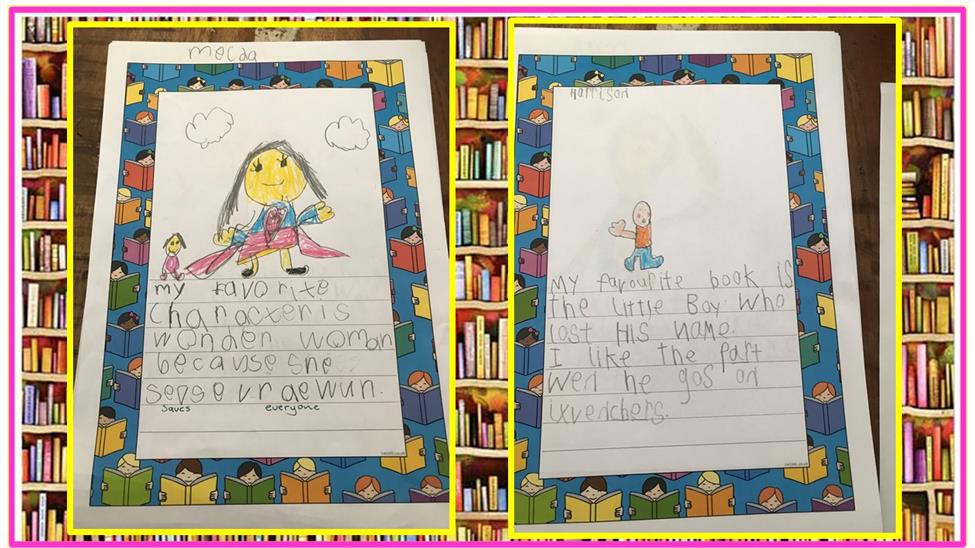 mecda
my favorite
character is
wonder woman
because she
sense vr aewun.
saves everyone
Harrison
My favourite book is
the little Boy who
lost His name.
I like the part
wen he gos on
ixvenchers.